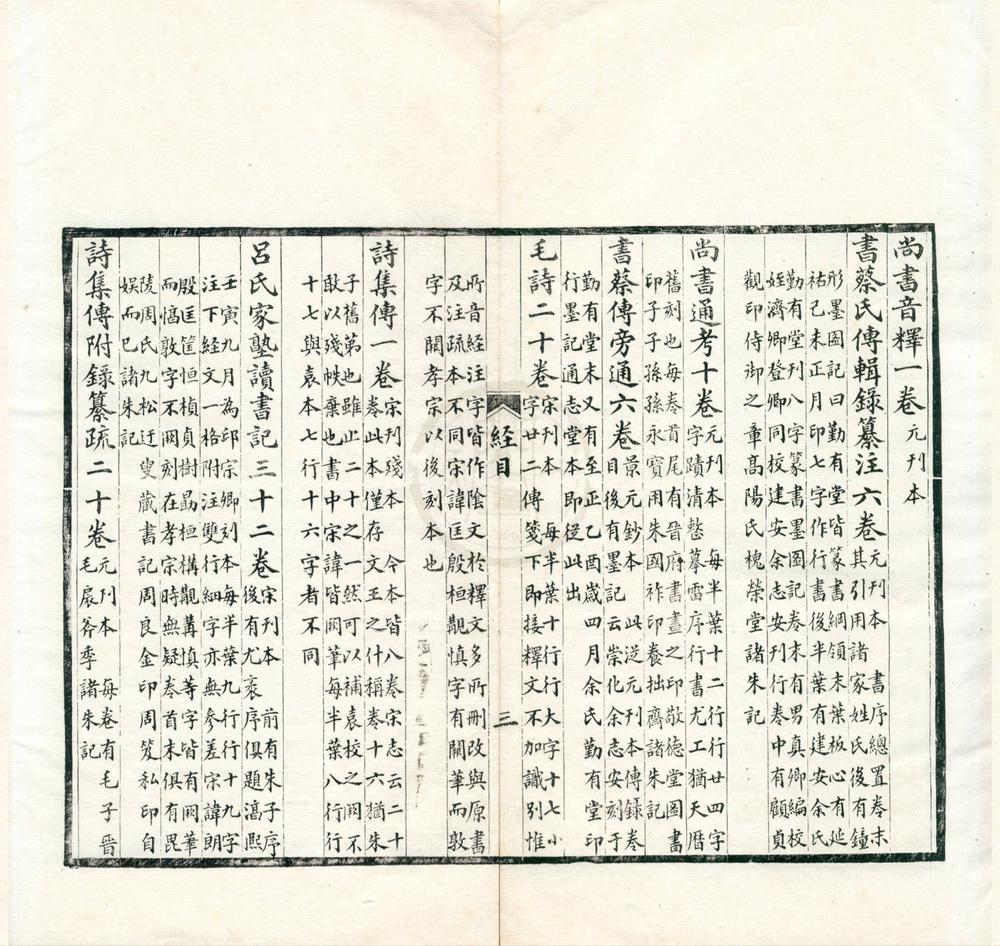 尚書音釋一卷 元刊本
書蔡氏傳輯錄纂注六卷 元刊本 書序總置卷末
其引用諸家姓氏後有鐘
形墨圖記曰勤有堂皆篆書綱領末葉板心有延
祐己未正月印七字作行書後半葉有建安余氏
勤有堂刊八字篆書墨圖記卷末有男真卿編校
姪濟卿登卿同校建安余志安刊行卷中有顧貞
觀印侍御之章高陽氏槐榮堂諸朱記
尚書通考十卷 元刊本 每半葉十二行行廿四字
字蹟清整摹雷序行書尤工猶天曆
舊刻也每卷首尾有晉府書畫之印敬德堂圖書
印子子孫孫永寶用朱國祚印養拙齋諸朱記
書蔡傳旁通六卷 景元鈔本 此从元刊本傳錄卷
目後有墨記云崇化余志安刻于
勤有堂末又有至正乙酉歲四月余氏勤有堂印
行墨記通志堂本即從此出
毛詩二十卷 宋刊本 每半葉十行行大字十七小
字廿二傳箋下即接釋文不加識別惟
經目
三
所音經注字皆作陰文於釋文多所刪改與原書
及注疏本不同宋諱匡殷桓覯慎字有闕筆而敦
字不闕孝宗以後刻本也
詩集傳一卷 宋刊殘本 今本皆八卷宋志云二十
卷此本僅存文王之什稱卷十六猶朱
子舊第也雖止二十之一然可以補袁校之罔不
敢以殘帙棄也書中宋諱皆闕筆每半葉八行行
十七與袁本七行十六字者不同
呂氏家塾讀書記三十二卷 宋刊本 前有朱子序
後有尤袤序俱題淳熙
壬寅九月為邱宗卿刻本每半葉九行行十九字
注下經文一格附注雙行細字亦無參差宋諱朗
殷匡筐恒楨貞樹勗桓構覯溝慎等字皆有闕筆
而惇敦字不闕刻在孝宗時無疑卷首末俱有毘
陵周氏九松迂叟藏書記周良金印周笈私印自
娛而已諸朱記
詩集傳附錄纂疏二十卷 元刊本 每卷有毛子晉
毛扆斧季諸朱記